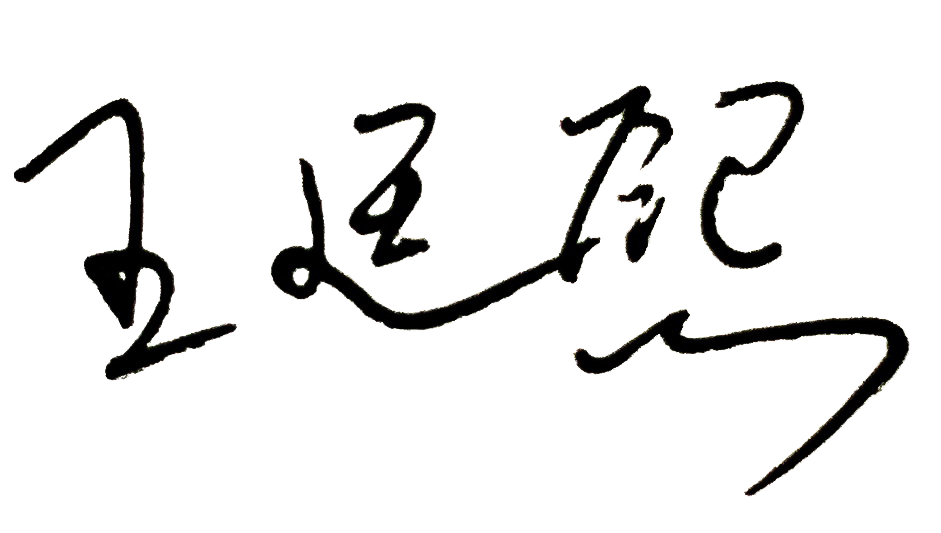 王廷熙